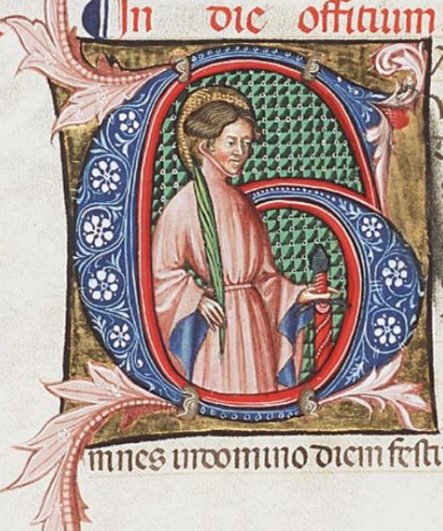 In die officium
G
mnes in domino diem festi